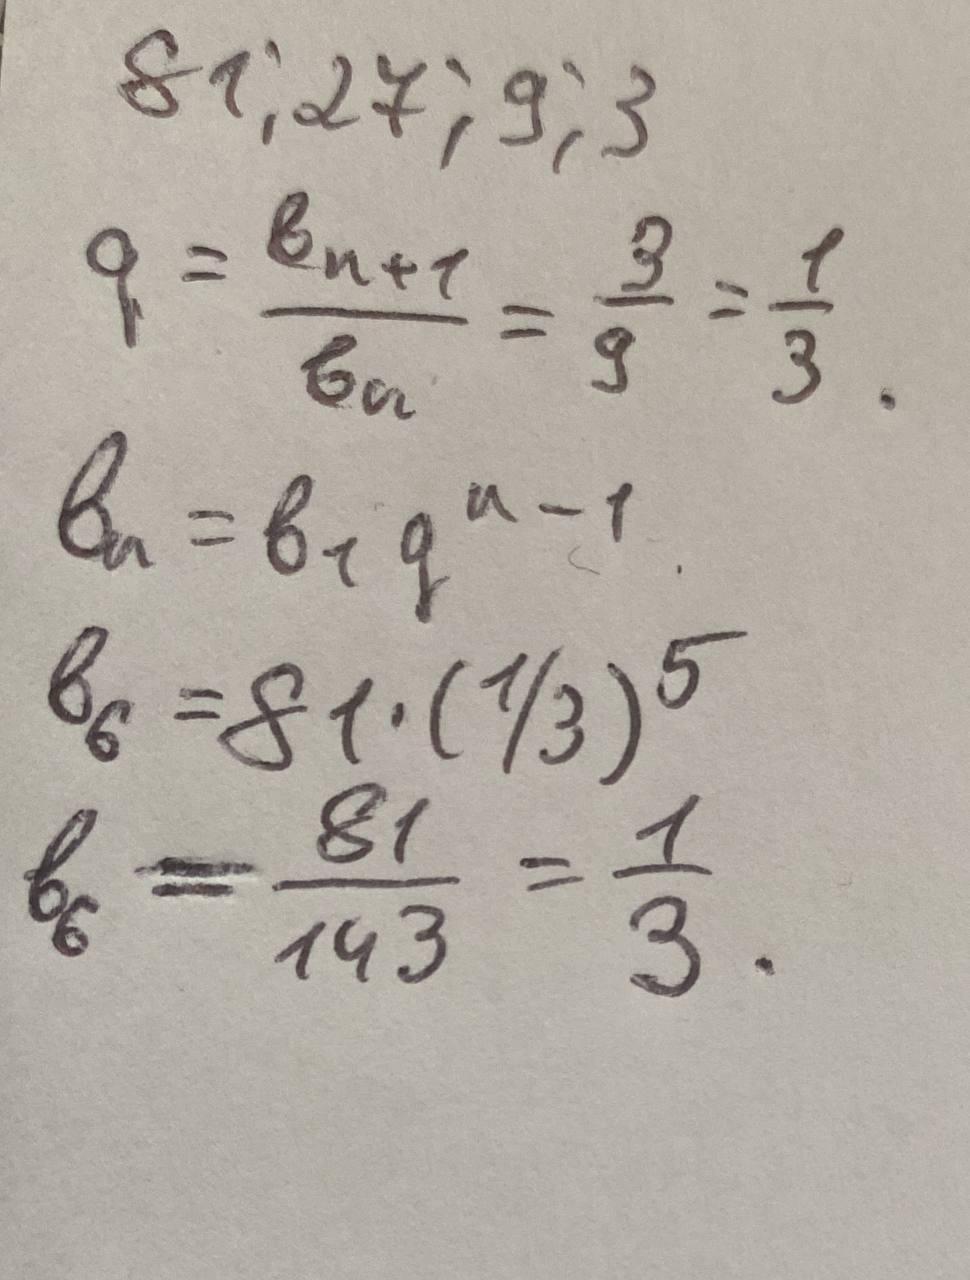 81; 27; 9; 3
q = вn+1/вn = 3/9 = 1/3.
вn = в1 q^n-1.
в6 = 81·(1/3)^5
в6 = 81/143 = 1/3.